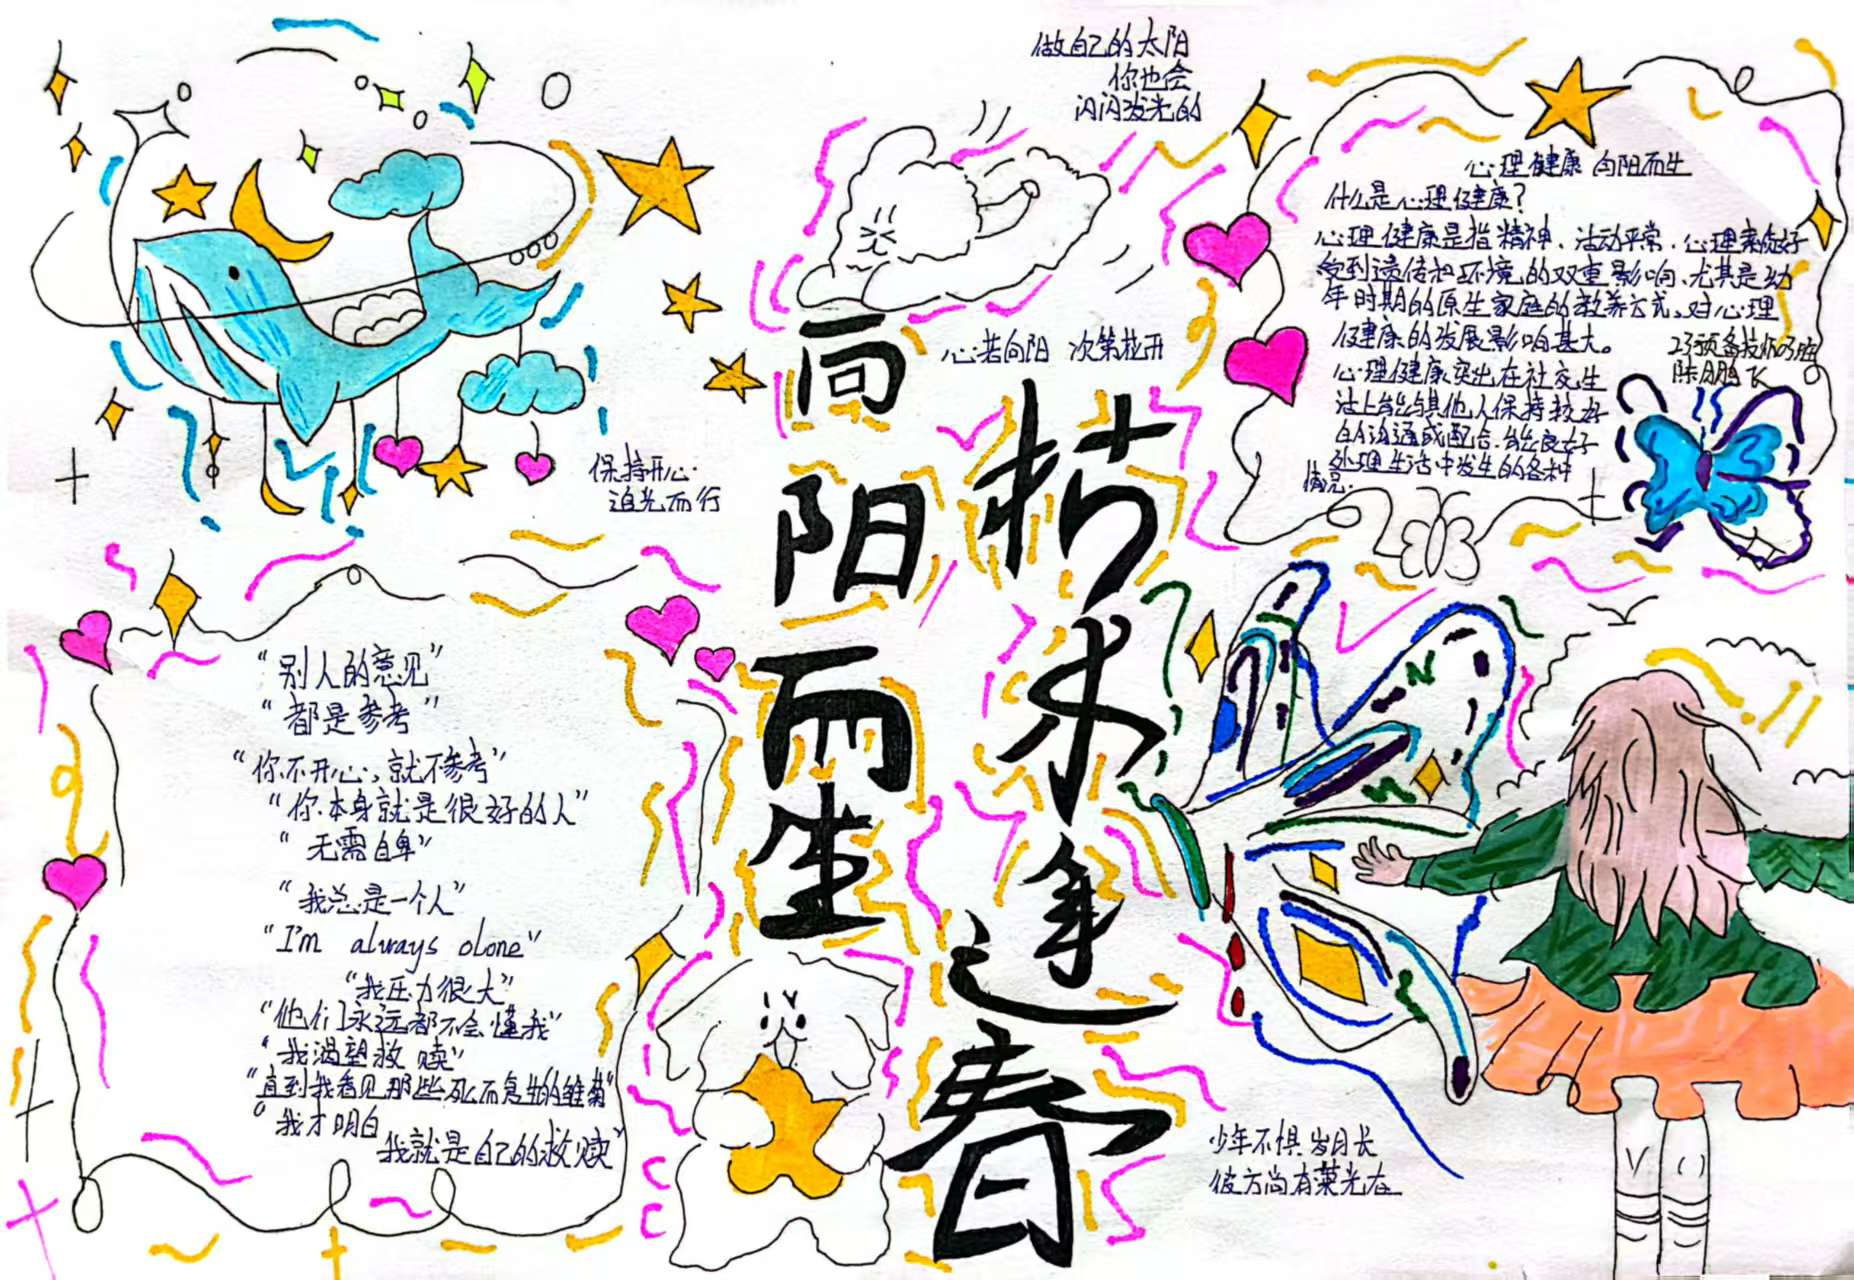 做自己的太阳
你也会
闪闪发光的
心理健康 向阳而生
什么是心理健康?
心理健康是指精神、活动平常、心理素质好
受到遗传和环境的双重影响、尤其是幼
年时期的原生家庭的教养方式、对心理
健康的发展影响甚大。
心理健康突出在社交生
活上能与其他人保持较好
的沟通或配合、能良好
处理生活中发生的各种
情况.
陈鹏飞
心若向阳 次第花开
保持开心
追光而行
向
阳
而
生
枯
木
逢
春
"别人的意见"
"都是参考"
"你不开心,就不参考"
"你本身就是很好的人"
"无需自卑"
"我总是一个人"
"I'm always alone"
"我压力很大"
"他们永远都不会懂我"
"我渴望救赎"
"直到我看见那些死而复生的雏菊"
"我才明白
我就是自己的救赎"
少年不惧岁月长
彼方尚有荣光在